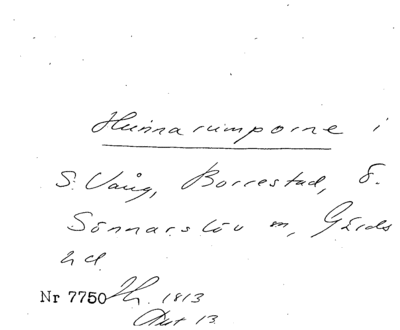 Hunnarumporne i
S. Vång, Borrestad, Ö.
Sönnarslöv m, Gärds
hd.
Nr 7750 Th. 1813
Akt 13